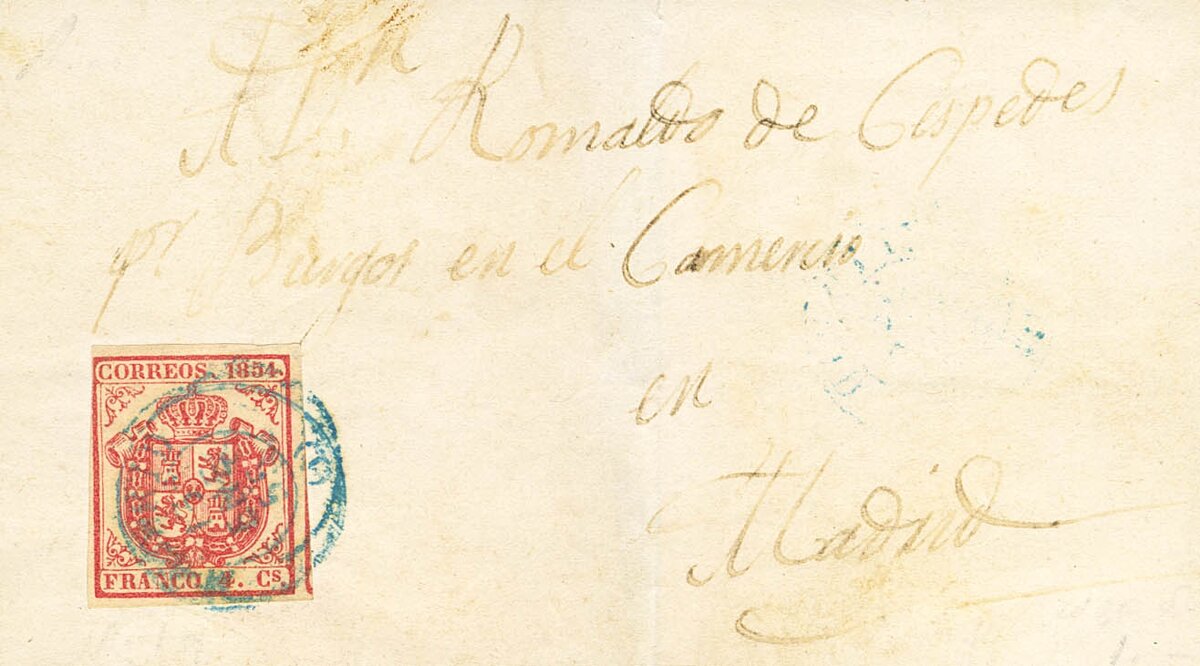 A Dn Romualdo de Cespedes
pr. Burgos en el Comercio
en
Madrid
CORREOS 1854.
FRANCO 4. Cs.